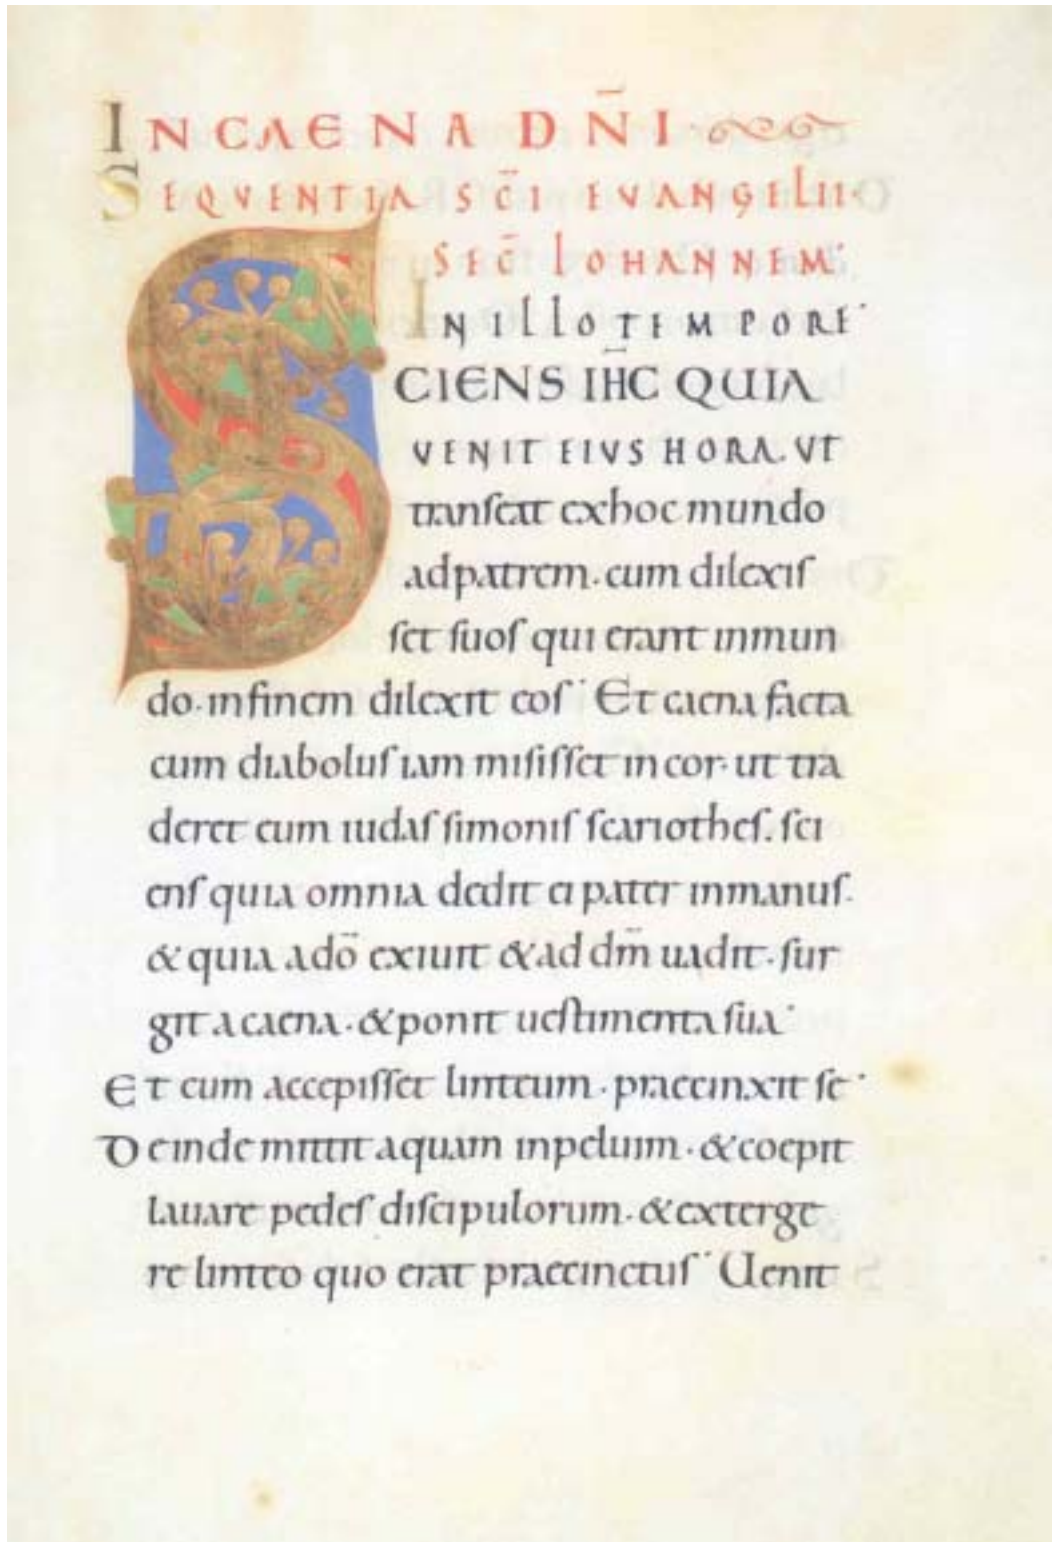 IN CAENA DN̄I
SEQVENTIA SC̄I EVANGELII·
SEC̄ IOHANNEM·
IN ILLO TEMPORE·
SCIENS IH̄C QUIA
VENIT EIVS HORA. VT
tranſeat ex hoc mundo
ad patrem · cum dilexiſ
ſet ſuoſ qui erant in mun
do · in finem dilexit eoſ· Et caena facta
cum diaboluſ iam miſiſſet in cor · ut tra
deret eum iudaſ ſimoniſ ſcariotheſ. ſci
enſ quia omnia dedit ei pater in manuſ·
& quia a dō exiuit & ad dm̄ uadit · ſur
git a caena · & ponit ueſtimenta ſua·
Et cum accepiſſet linteum · praecinxit ſe·
Deinde mittit aquam in peluim · & coepit
lauare pedeſ diſcipulorum · & exterge
re linteo quo erat praecinctuſ· Uenit